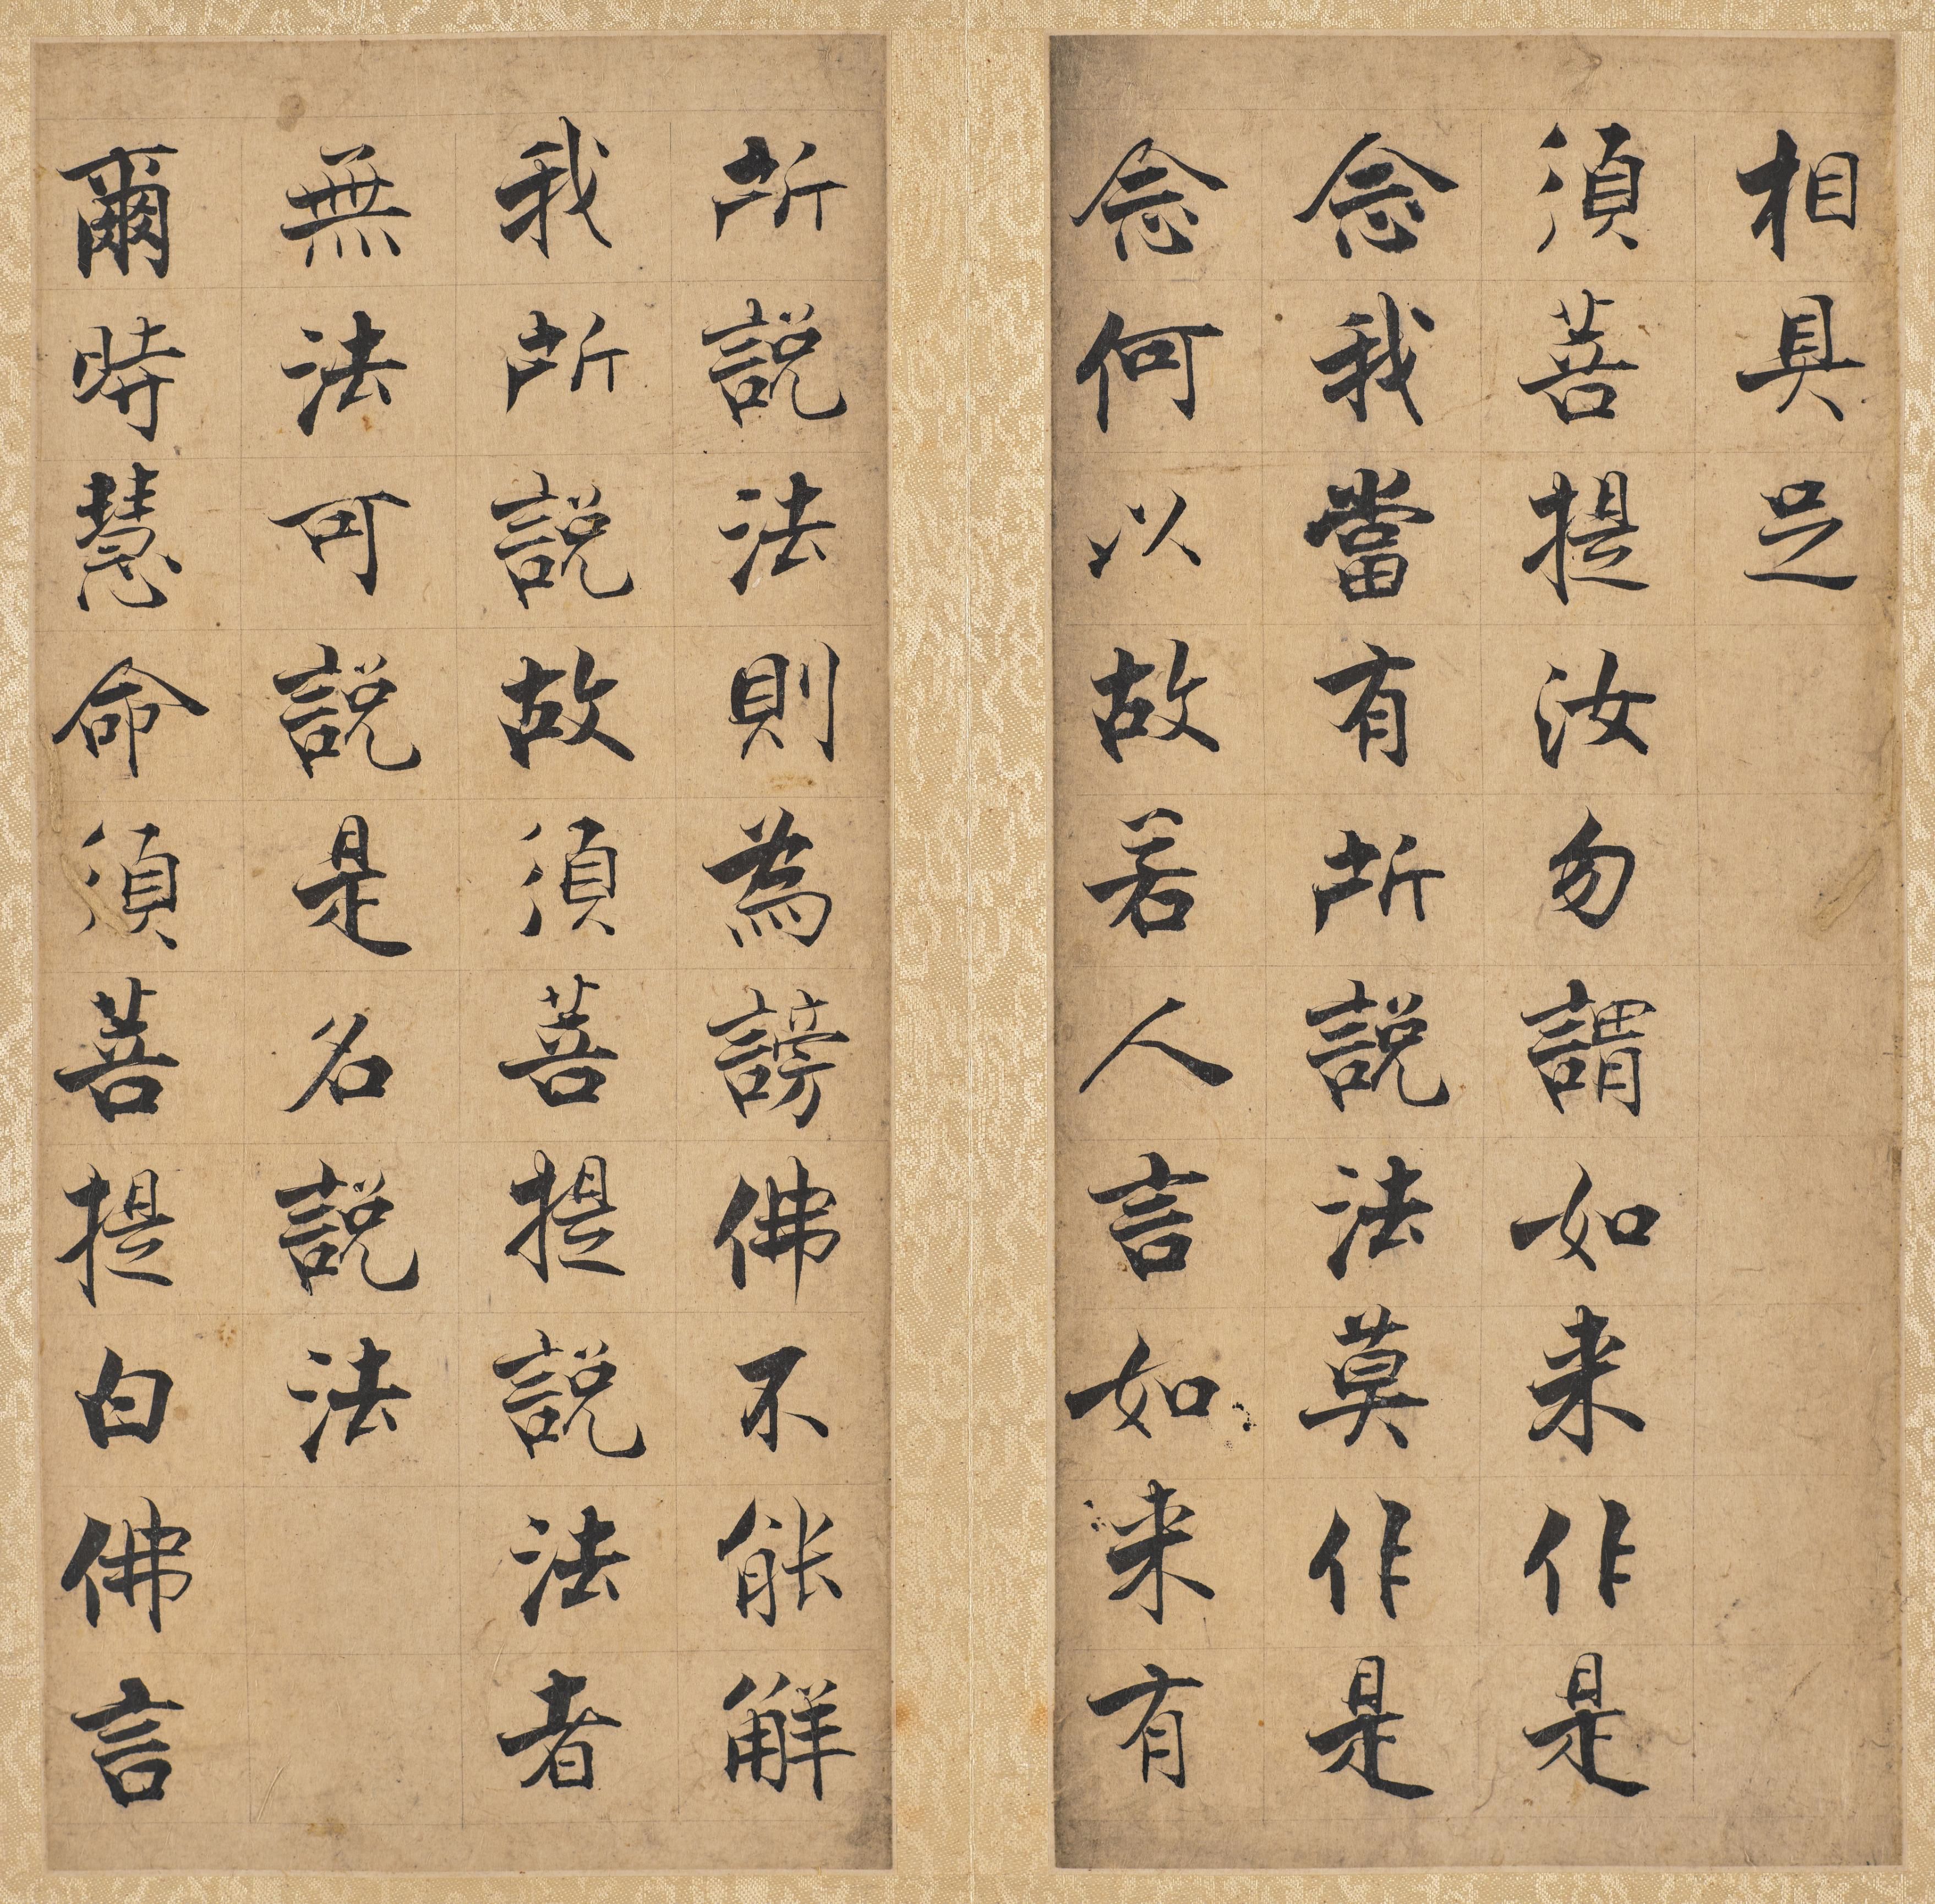 相具足
須菩提汝勿謂如来作是
念我當有所說法莫作是
念何以故若人言如来有
所說法則為謗佛不能解
我所說故須菩提說法者
無法可說是名說法
爾時慧命須菩提白佛言